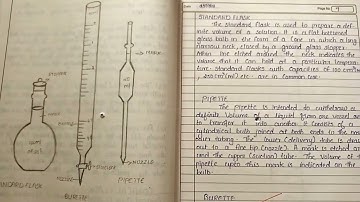 STANDARD FLASK
The standard flask is used to prepare a defi-
nite volume of a solution. It is a flat bottomed
glass bulb in the form of a cone in which a long
narrow neck, closed by a ground glass stopper.
A thin line etched around the neck indicates the
volume that it can hold at a particular tempera-
ture. Standard flasks with capacities of 100 cm³
etc. are in common use.
PIPETTE
The pipette is intended to withdraw a
definite volume of a liquid from one vessel and
to transfer it into another. It consists of a
cylindrical bulb joined at both ends to the narr-
ower tubing. The lower (delivery) tube is drawn
out to a fine tip (nozzle). A mark is etched ar-
und the upper (suction) tube. The volume of the
pipette upto this mark is indicated on the
bulb.
BURETTE
STOPPER
NOZZLE
NOZZLE
STANDARD FLASK
BURETTE
PIPETTE